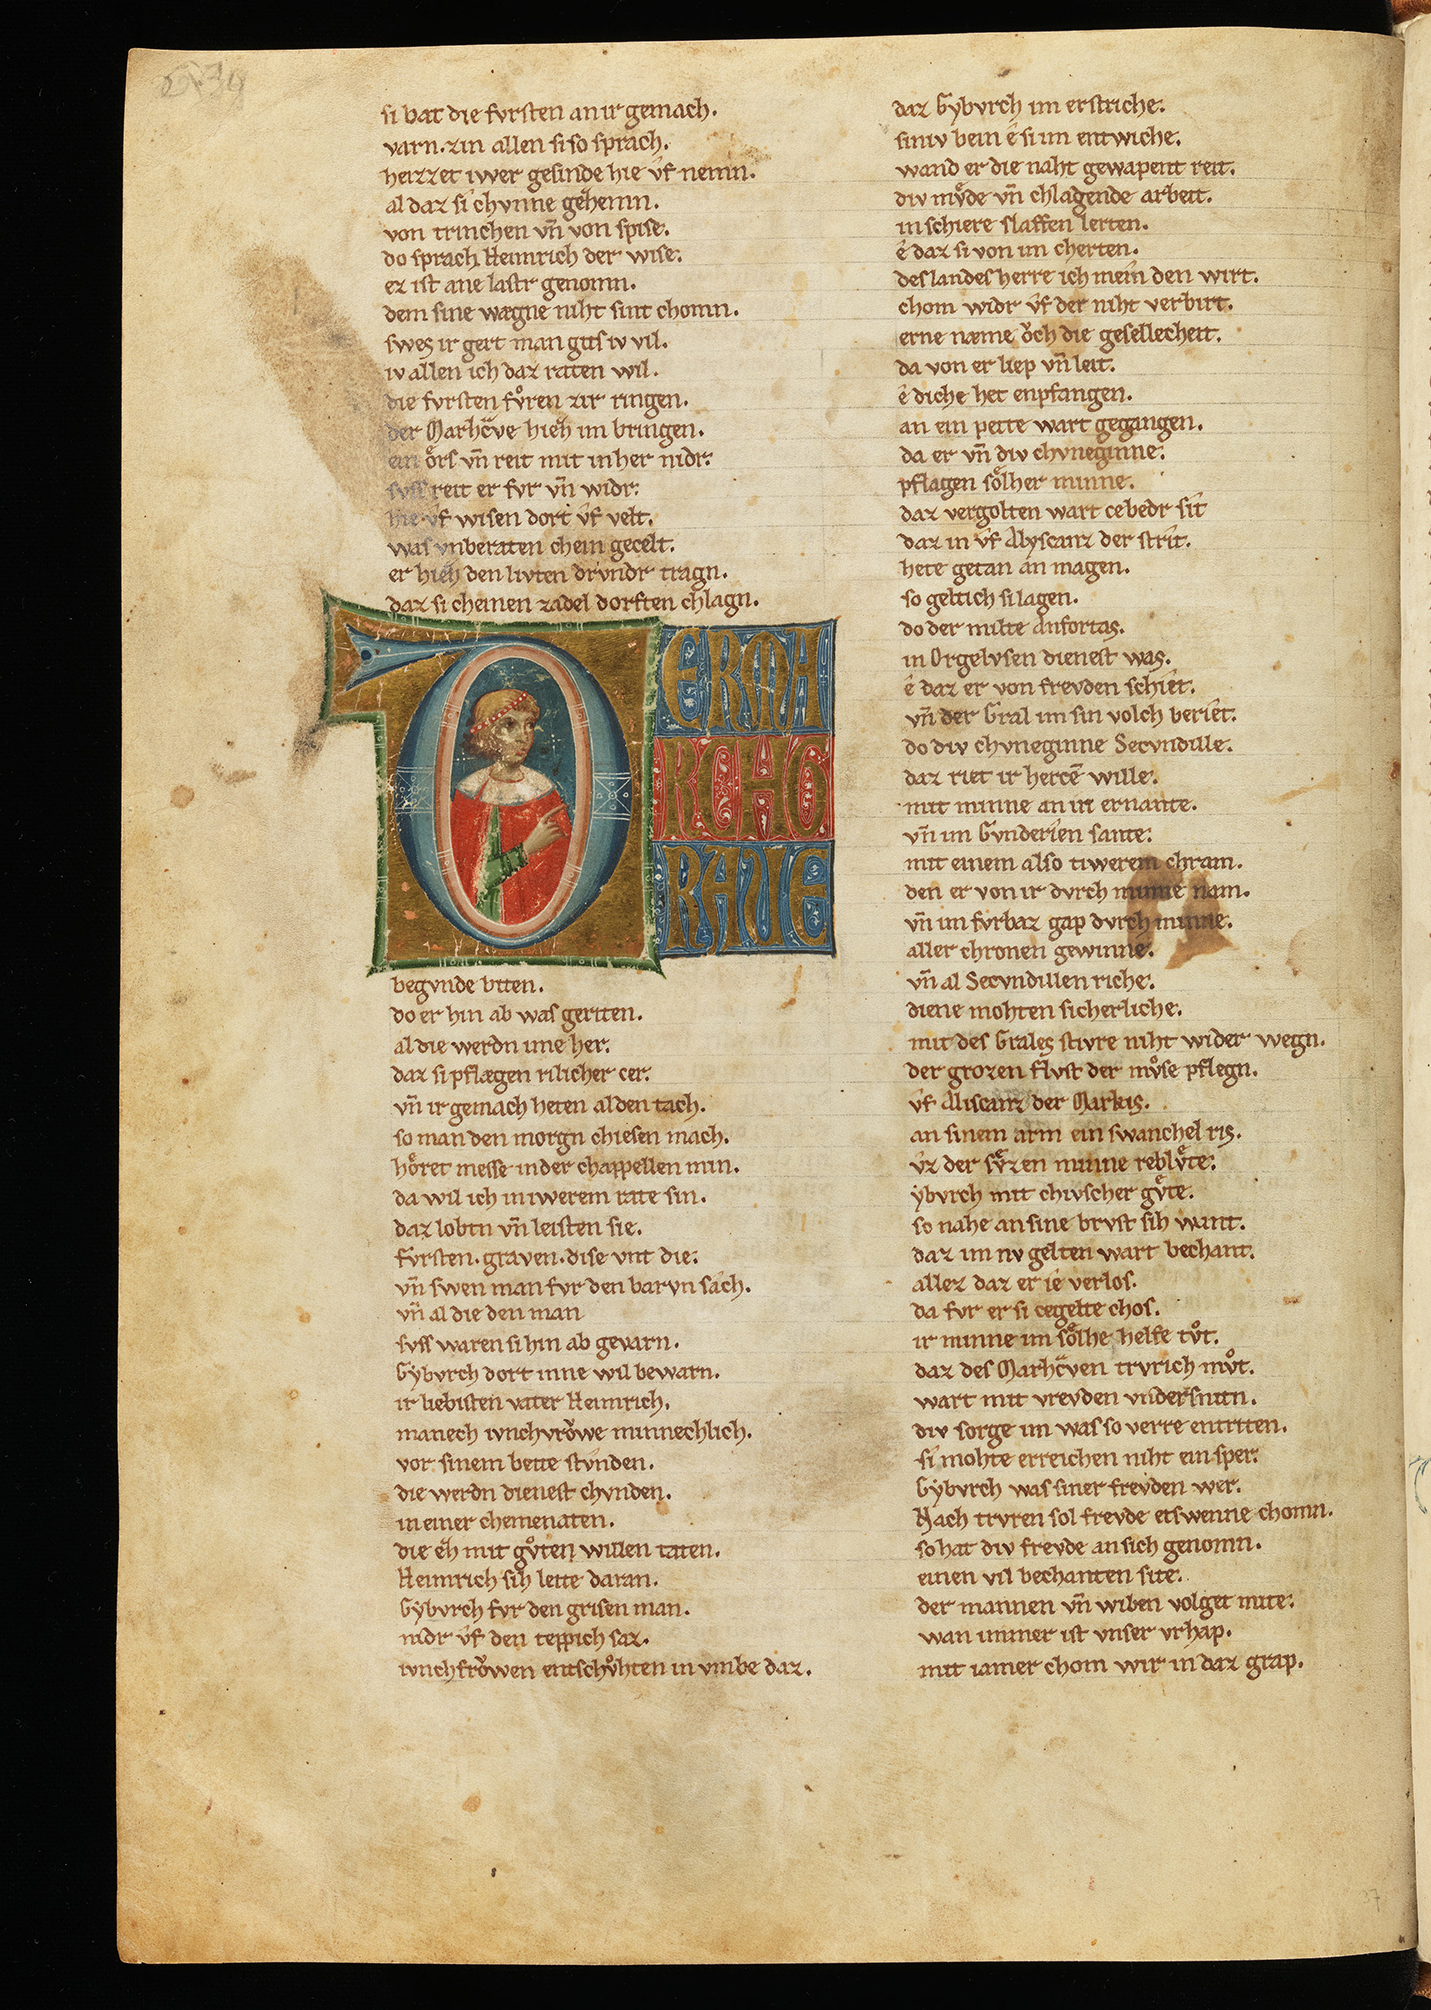 si bat die fvrsten an ir gemach.
varn. zin allen si so sprach.
heizzet iwer gesinde hie vf nemn.
al daz si chvnne gehemn.
von trinchen vn̄ von spise.
do sprach Heimrich der wise.
ez ist ane lastr genomn.
dem sine wægne niht sint chomn.
swes ir gert man gits iv vil.
iv allen ich daz raten wil.
die fvrsten fv̊ren zir ringen.
der Marhc̄ve hieh im bringen.
ein o̊rs vn̄ reit mit in her nidr.
svss reit er fvr vn̄ widr.
hie vf wisen dort vf velt.
was vnberaten chein gecelt.
er hieh den livten drvndr tragn.
daz si cheinen zadel dorften chlagn.
DERMA
RCHG
RAVE
begvnde biten.
do er hin ab was geriten.
al die werdn ime her.
daz si pflægen rilicher cer.
vn̄ ir gemach heten al den tach.
so man den morgn chiesen mach.
ho̊ret messe in der chappellen min.
da wil ich in iwerem rate sin.
daz lobtn vn̄ leisten sie.
fvrsten. graven. dise vnt die.
vn̄ swen man fvr den barvn sach.
vn̄ al die den man
svss waren si hin ab gevarn.
Gybvrch dort inne wil bewarn.
ir liebisten vater Heimrich.
manech ivnchvro̊we minnechlich.
vor sinem bette stvnden.
die werdn dienest chvnden.
in einer chemenaten.
die eh mit gv̊ten willen taten.
Heimrich sih leite daran.
Gybvrch fvr den grisen man.
nidr vf den teppich saz.
ivnchfro̊wen entschv̊hten in vmbe daz.
daz Gybvrch im erstriche.
siniv bein e si im entwiche.
wand er die naht gewapent reit.
div mv̊de vn̄ chlagende arbeit.
in schiere slaffen lerten.
e daz si von im cherten.
des landes herre ich mein den wirt.
chom widr vf der niht verbirt.
erne næme o̊ch die gesellecheit.
da von er liep vn̄ leit.
e diche het enpfangen.
an ein pette wart gegangen.
da er vn̄ div chvneginne.
pflagen so̊lher minne.
daz vergolten wart cebedr sit
daz in vf Alyscanz der strit.
hete getan an magen.
so geltich si lagen.
do der milte Anfortas.
in Orgelvsen dienest was.
e daz er von frevden schiet.
vn̄ der Gral im sin volch beriet.
do div chvneginne Secvndille.
daz riet ir hercē wille.
mit minne an in ernante.
vn̄ im Gvnderien sante.
mit einem also tiwerem chram.
den er von ir dvrch minne nam.
vn̄ im fvrbaz gap dvrch minne.
aller chronen gewinne.
vn̄ al Secvndillen riche.
diene mohten sicherliche.
mit des Grales stivre niht wider wegn.
der grozen flvst der mv̊se pflegn.
vf Aliscanz der Markis.
an sinem arm ein swanchel ris.
vz der sv̊zen minne reblv̊te.
ybvrch mit chivscher gv̊te.
so nahe an sine brvst sih want.
daz im nv gelten wart bechant.
allez daz er ie verlos.
da fvr er si cegelte chos.
ir minne im so̊lhe helfe tv̊t.
daz des Marhc̄ven trvrich mv̊t.
wart mit vrevden vndersnitn.
div sorge im was so verre entriten.
si mohte erreichen niht ein sper.
Gybvrch was siner frevden wer.
Nach trvren sol frevde etswenne chomn.
so hat div frevde an sich genomn.
einen vil bechanten site.
der mannen vn̄ wiben volget mite.
wan iamer ist vnser vrhap.
mit iamer chom wir in daz grap.
37